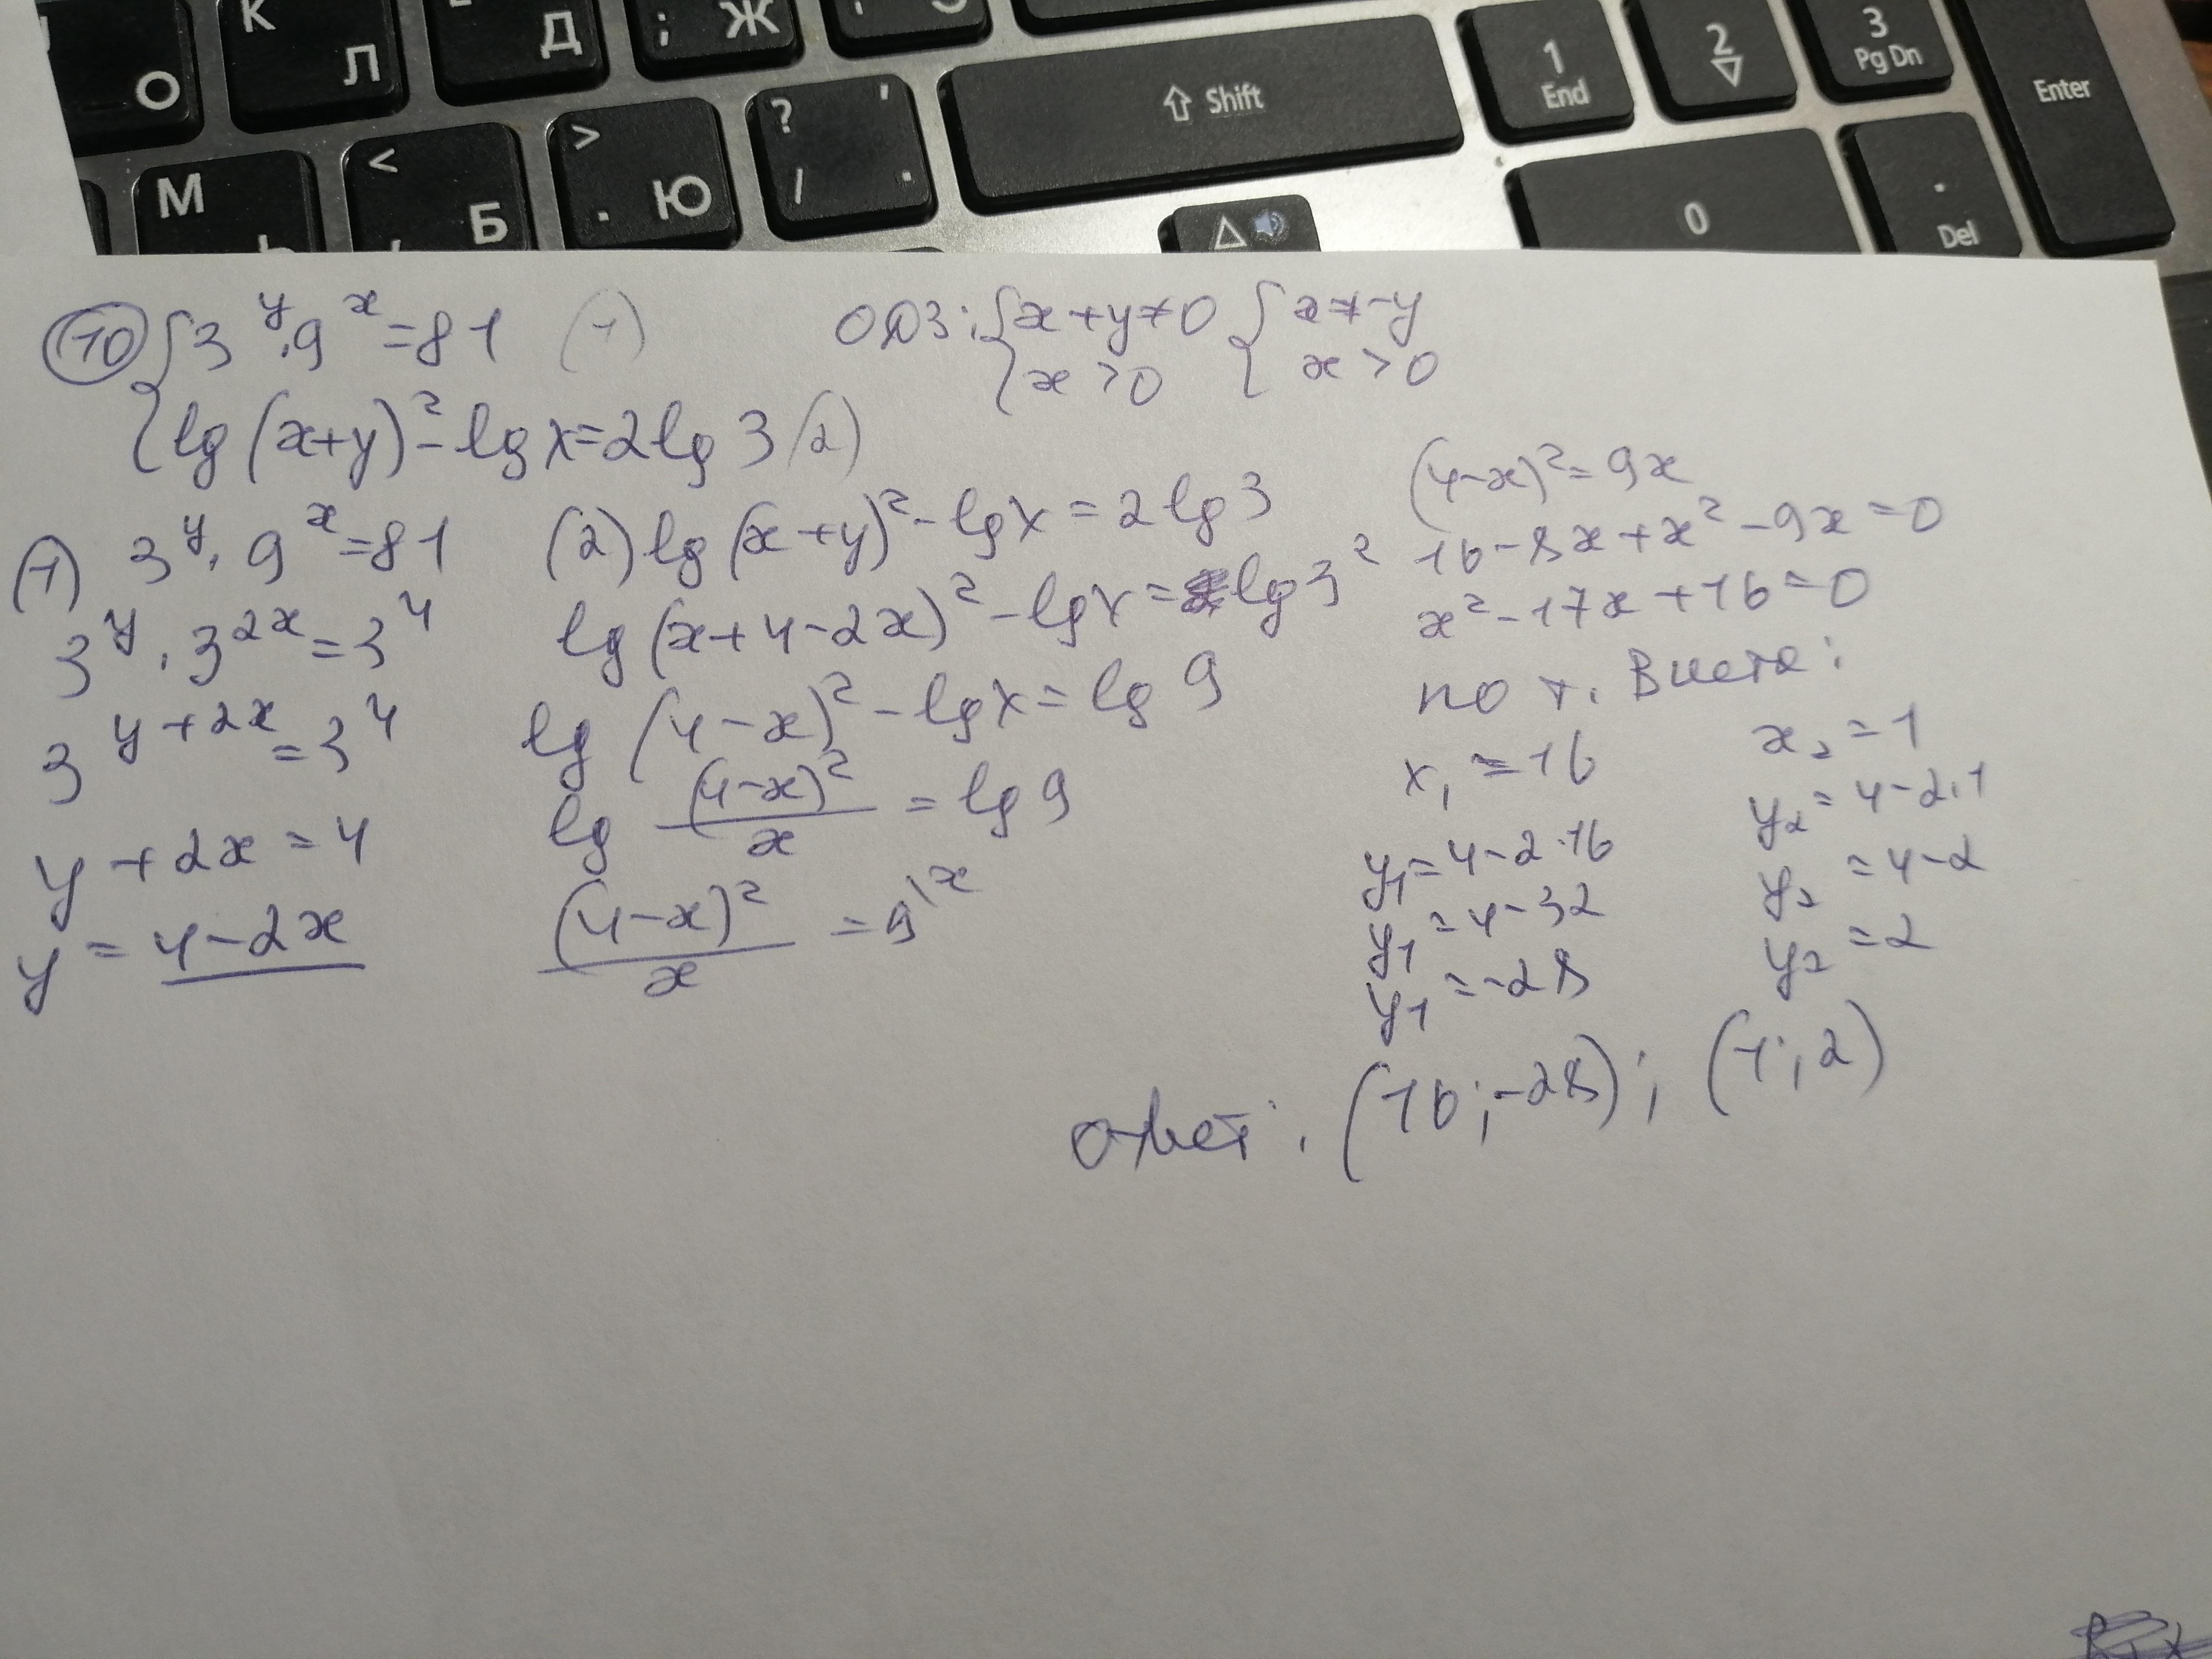 К Л Д ; Ж
О
1 End
2
3 Pg Dn
Enter
Shift
М < Б > . Ю ? / ' .
0
. Del
10 { 3^y · 9^x = 81 (1)
lg(x+y)² - lg x = 2 lg 3 (2)
ОДЗ: { x+y ≠ 0 { x ≠ -y
x > 0 x > 0
(1) 3^y · 9^x = 81
3^y · 3^(2x) = 3^4
3^(y+2x) = 3^4
y + 2x = 4
y = 4 - 2x
(2) lg(x+y)² - lg x = 2 lg 3
lg(x+4-2x)² - lg x = lg 3²
lg(4-x)² - lg x = lg 9
lg (4-x)²/x = lg 9
(4-x)²/x = 9 \x
(4-x)² = 9x
16 - 8x + x² - 9x = 0
x² - 17x + 16 = 0
по т. Виета:
x₁ = 16
y₁ = 4 - 2·16
y₁ = 4 - 32
y₁ = -28
x₂ = 1
y₂ = 4 - 2·1
y₂ = 4 - 2
y₂ = 2
ответ: (16; -28); (1; 2)